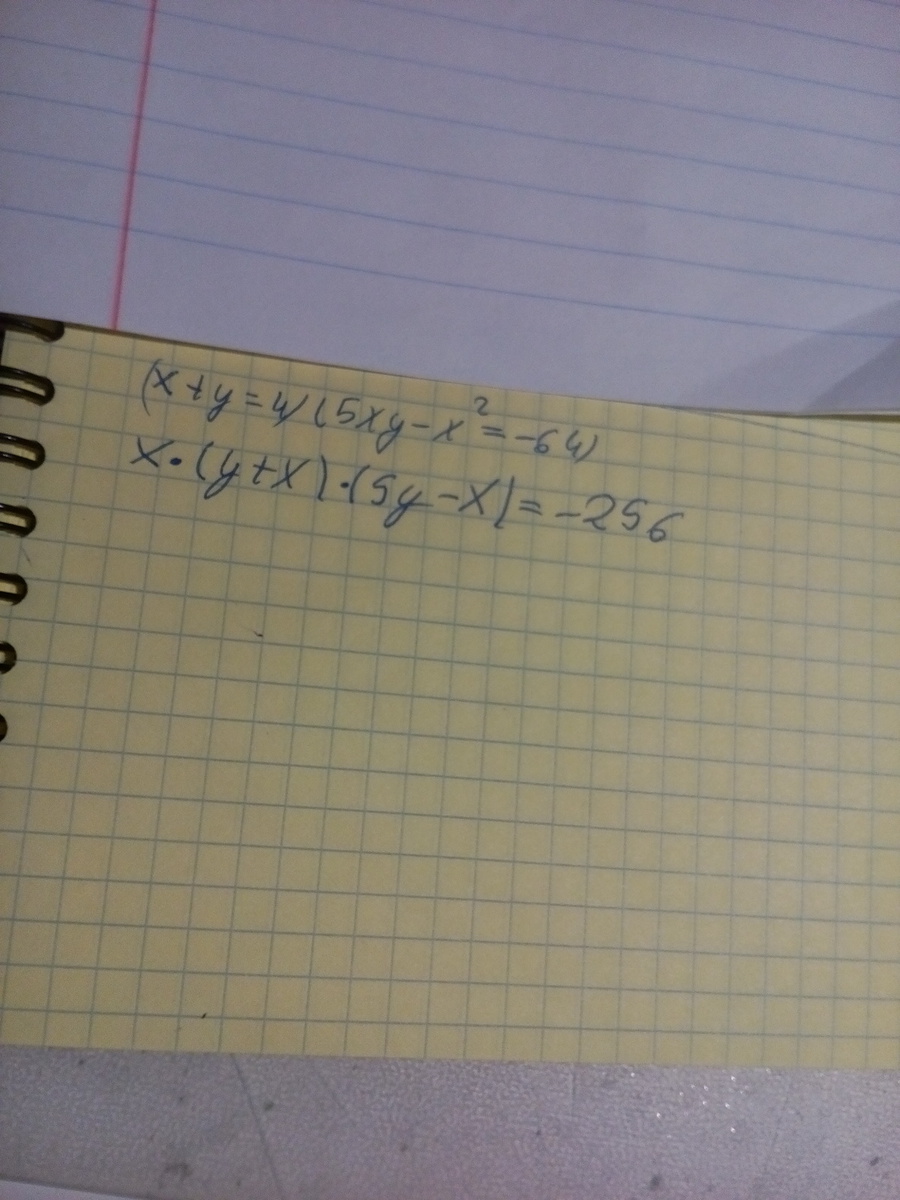 (x+y=4)(5xy-x²=-64)
x·(y+x)·(5y-x)=-256